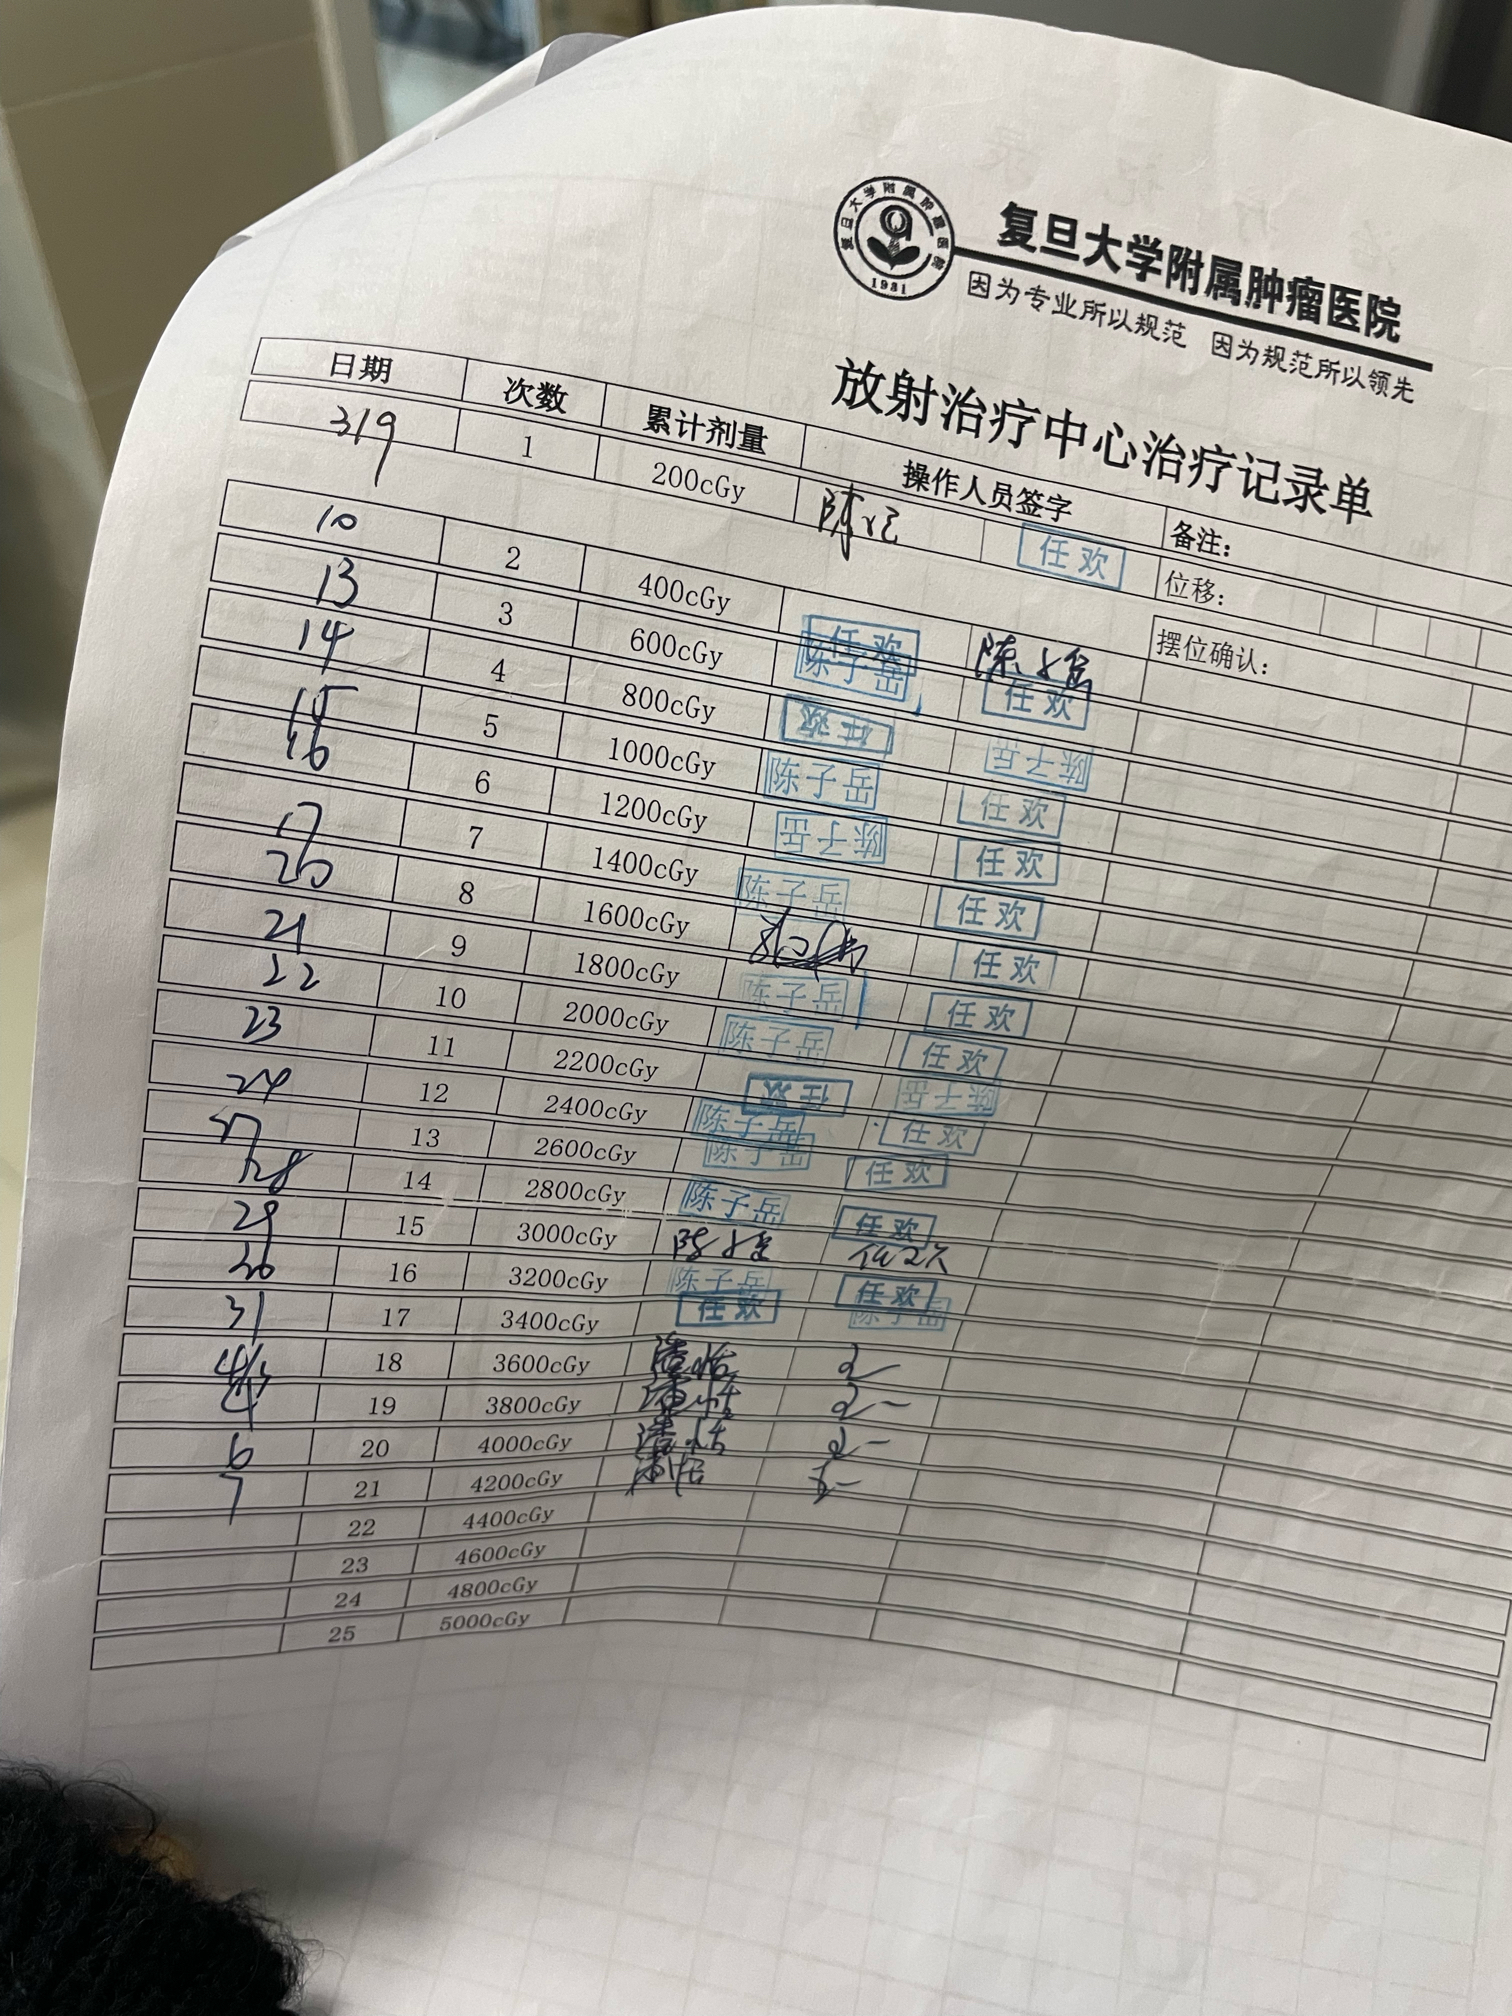 复旦大学附属肿瘤医院
1931
复旦大学附属肿瘤医院
因为专业所以规范 因为规范所以领先
放射治疗中心治疗记录单
日期 次数 累计剂量 操作人员签字 备注:
3/9 1 200cGy 任欢 位移:
10 2 400cGy 任欢 陈子岳 摆位确认:
13 3 600cGy 陈子岳 任欢
14 4 800cGy 任欢 陈子岳
15 5 1000cGy 陈子岳 任欢
16 6 1200cGy 陈子岳 任欢
17 7 1400cGy 陈子岳 任欢
20 8 1600cGy 任欢
21 9 1800cGy 陈子岳 任欢
22 10 2000cGy 陈子岳 任欢
23 11 2200cGy 任欢 陈子岳
24 12 2400cGy 陈子岳 任欢
27 13 2600cGy 陈子岳 任欢
28 14 2800cGy 陈子岳 任欢
29 15 3000cGy 陈子岳 任欢
30 16 3200cGy 陈子岳 任欢
31 17 3400cGy 任欢 陈子岳
4/3 18 3600cGy
4 19 3800cGy
6 20 4000cGy
7 21 4200cGy
22 4400cGy
23 4600cGy
24 4800cGy
25 5000cGy